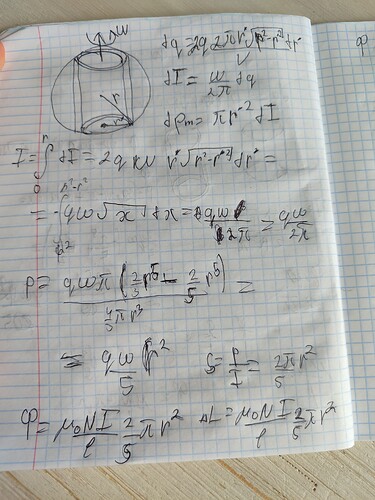 ω
dq = 2q 2πr' √r²-r'² dr'
dI = ω/2π dq
dpm = πr'² dI
r
r'
I = ∫ dI = 2q r' √r²-r'² dr' =
r
0
= -qω √x dx = = qω/2π
P = qωπ (2/3 r⁵ - 2/5 r⁵) / 4/3 πr³ =
= qω/5 r² S = P/I = 2πr²/5
Φ = μ₀NI/l 2/5 πr² ΔL = μ₀NI/l 2/5 πr²